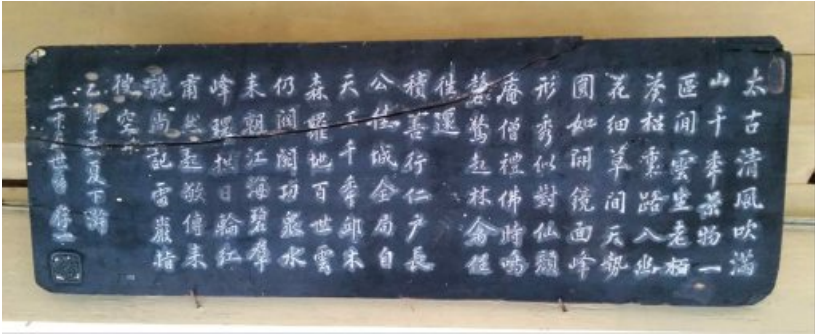 太古清風吹滿
山千秊景物一
區間雲坐老栢
蒼松裏路入幽
花細草間天勢
圓如開鏡面峰
形秀似對仙顔
庵僧禮佛時鳴
磬驚起林禽任
徃還
積善行仁户長
公佳城全局自
天工千秊邱木
森羅地百世雲
仍閣功泉水
来朝江海碧羣
峰環拱日輪紅
肅然起敬傳来
說尚記雷巖恠
彼空
乙卯孟夏下澣
二十世